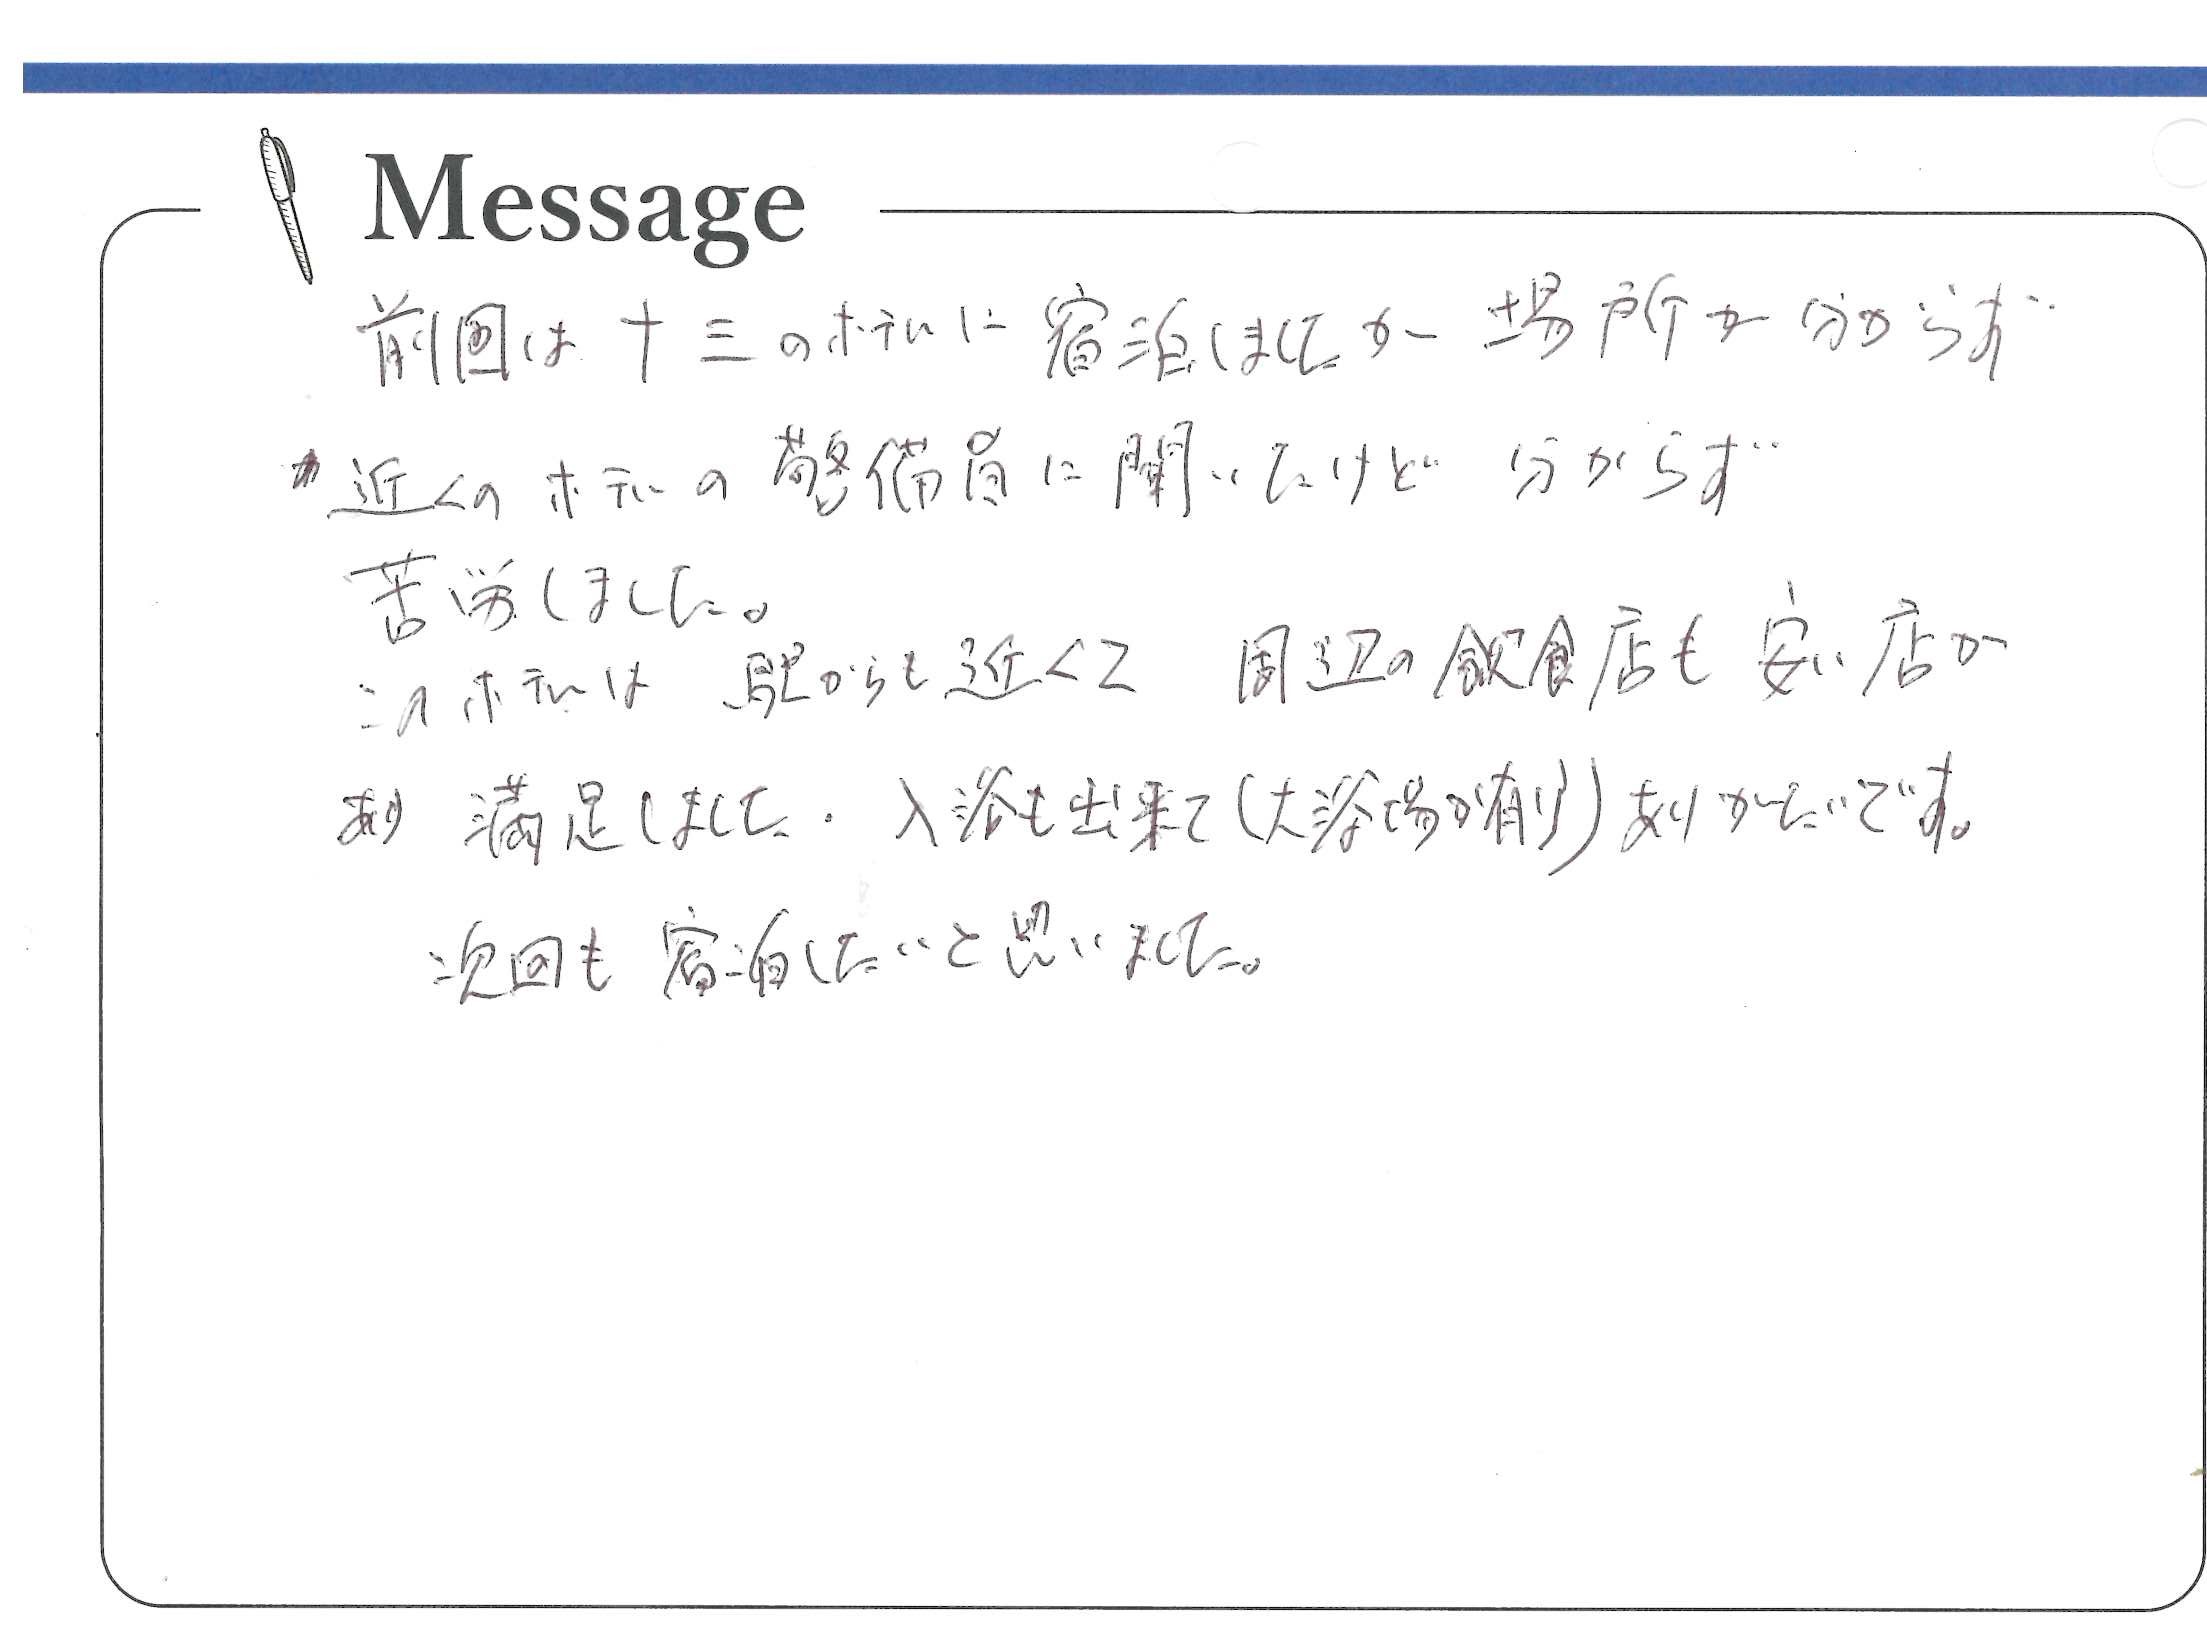 Message
前回は十三のホテルに宿泊しましたが場所が分からず
近くのホテルの警備員に聞いたけど分からず
苦労しました。
このホテルは駅からも近くて周辺の飲食店も安い店が
あり満足しました.入浴も出来て(大浴場が有り)ありがたいです。
次回も宿泊したいと思いました。